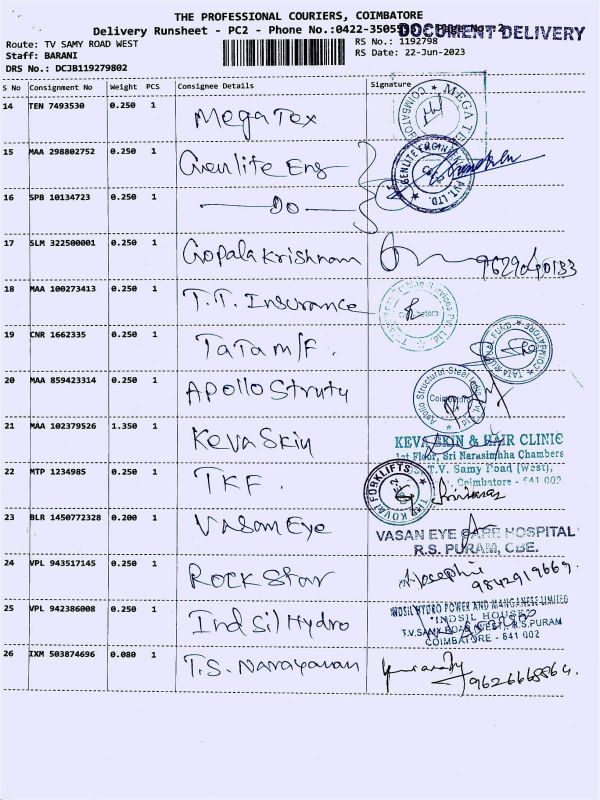 THE PROFESSIONAL COURIERS, COIMBATORE
Delivery Runsheet - PC2 - Phone No.:0422-3505
DOCUMENT DELIVERY
Route: TV SAMY ROAD WEST
RS No.: 1192798
Staff: BARANI
RS Date: 22-Jun-2023
DRS No.: DCJB119279802
S No Consignment No Weight PCS Consignee Details Signature
14 TEN 7493530 0.250 1 Mega Tex
15 MAA 298802752 0.250 1 Genlite Eng
16 SPB 10134723 0.250 1 DO
17 SLM 322500001 0.250 1 Gopala Krishnan
18 MAA 100273413 0.250 1 T.T. Insurance
19 CNR 1662335 0.250 1 Tata M/F.
20 MAA 859423314 0.250 1 Apollo Struty
Apollo Structural Steel
Coimbatore
21 MAA 102379526 1.350 1 Keva Skin
KEVA SKIN & HAIR CLINIC
1st Floor, Sri Narasimha Chambers
T.V. Samy Road (West),
Coimbatore - 641 002
22 MTP 1234985 0.250 1 TKF.
THE KOVAI FORKLIFTS
23 BLR 1450772328 0.200 1 Vasan Eye
VASAN EYE CARE HOSPITAL
R.S. PURAM, CBE.
24 VPL 943517145 0.250 1 Rock Star
9842919669.
25 VPL 942386008 0.250 1 Ind Sil Hydro
INDSIL HYDRO POWER AND MANGANESE LIMITED
"INDSIL HOUSE"
T.V.SAMY ROAD (WEST), R.S.PURAM
COIMBATORE - 641 002
26 IXM 503874696 0.080 1 T.S. Narayanan